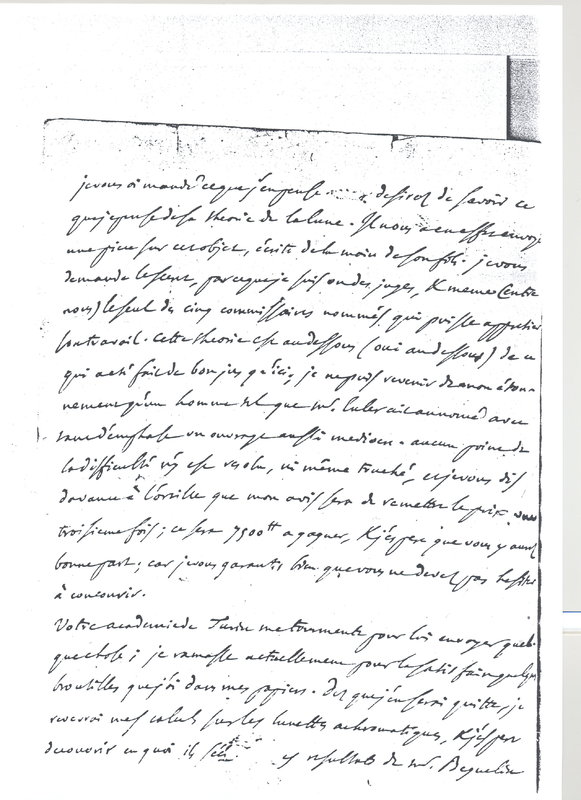 je vous ai mandé ce que j'en pense desirez de savoir ce
que je pense de sa theorie de la lune. Il nous a en effet envoyé
une piece sur cet objet, écrite de la main de son fils. je vous
demande le secret, parce que je suis un des juges, & meme (entre
nous) le seul des cinq commissaires nommés, qui puisse apprécier
son travail. Cette theorie est au dessous (oui au dessous) de ce
qui a été fait de bon jusqu'ici; je ne puis revenir de mon éton-
nement qu'un homme tel que mr. Euler ait annoncé avec
tant d'emphase un ouvrage aussi mediocre. aucun point de
la difficulté n'y est resolu, ni même touché, et je vous dis
d'avance à l'oreille que mon avis sera de remettre le prix une
troisieme fois; ce sera 7500 tt a gagner, & j'espere que vous y aurez
bonne part; car je vous garantis bien que vous ne devez pas hesiter
à concourir.
Votre academie de Turin me tourmente pour lui envoyer quel-
que chose; je ramasse actuellement pour la satisfaire quelques
broutilles que j'ai dans mes papiers. Dès que j'en serai quitte, je
reverrai mes calculs sur les lunettes achromatiques, & j'espere
decouvrir en quoi ils resultats de mr. Beguelin